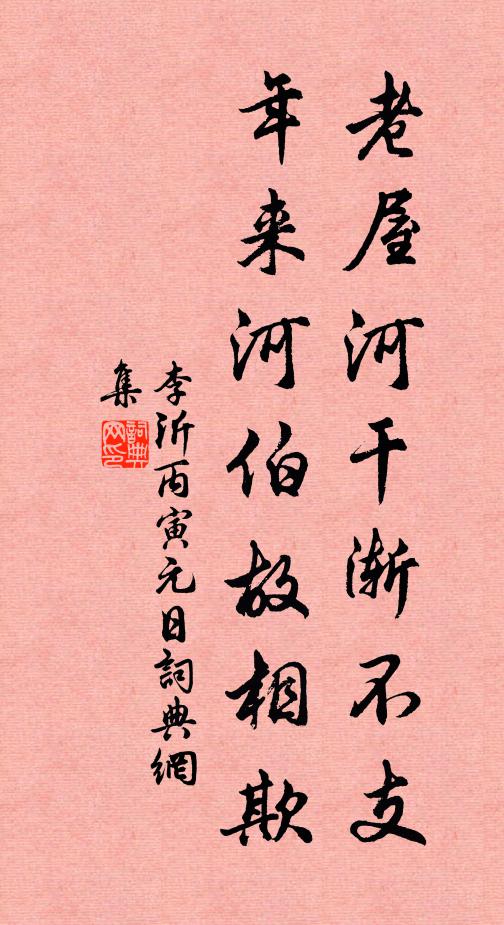 老屋河干漸不支
年来河伯故相欺
李沂丙寅元日詞典網
集
詞典网印